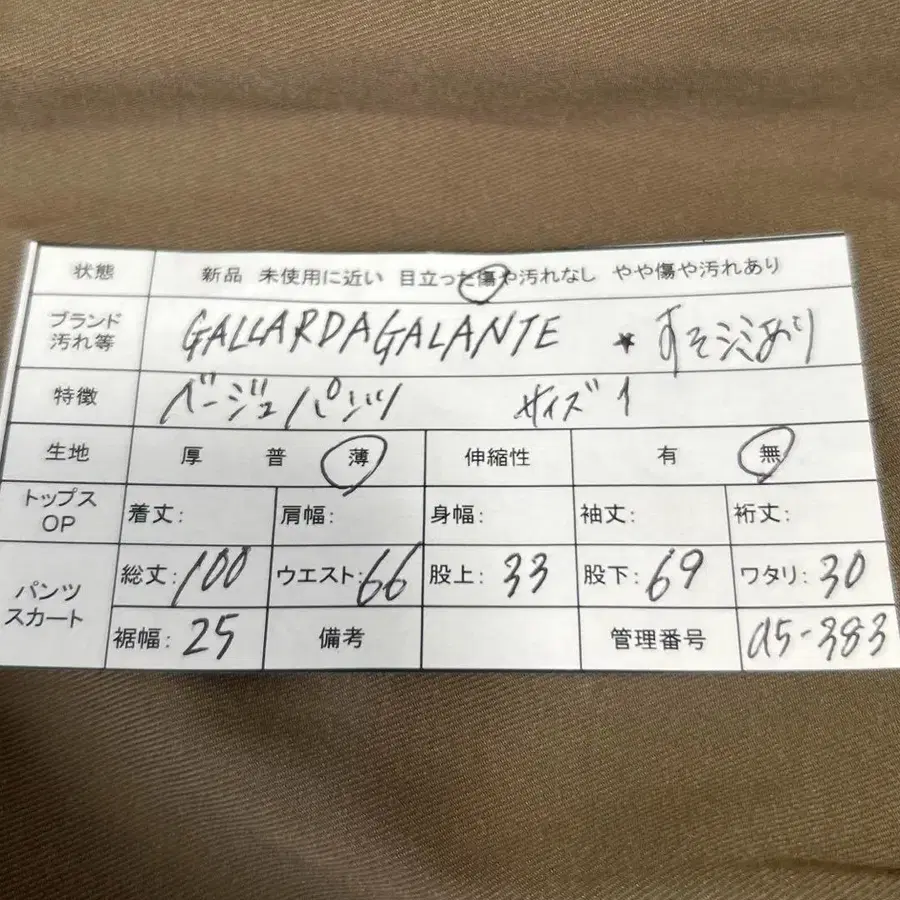 状態 新品 未使用に近い 目立った傷や汚れなし やや傷や汚れあり
ブランド 汚れ等 GALLARDAGALANTE ★すそシミあり
特徴 ベージュパンツ サイズ1
生地 厚 普 薄 伸縮性 有 無
トップス OP 着丈: 肩幅: 身幅: 袖丈: 裄丈:
パンツ スカート 総丈:100 ウエスト:66 股上:33 股下:69 ワタリ:30
裾幅:25 備考 管理番号 a5-383